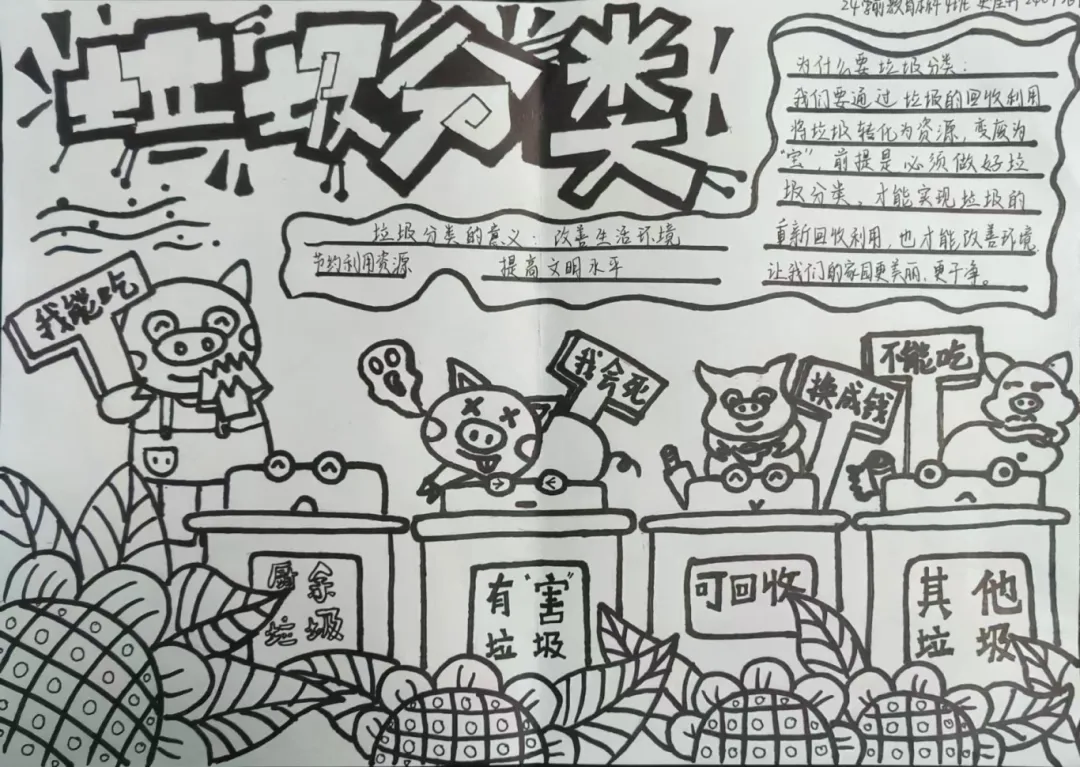 垃圾分类
24学前教育本科4班
为什么要垃圾分类：
我们要通过垃圾的回收利用
将垃圾转化为资源，变废为
“宝”，前提是必须做好垃
圾分类，才能实现垃圾的
重新回收利用，也才能改善环境，
让我们的家园更美丽，更干净。
垃圾分类的意义：改善生活环境
节约利用资源 提高文明水平
我能吃
我会死
换成钱
不能吃
厨余
垃圾
有“害”
垃圾
可回收
其他
垃圾